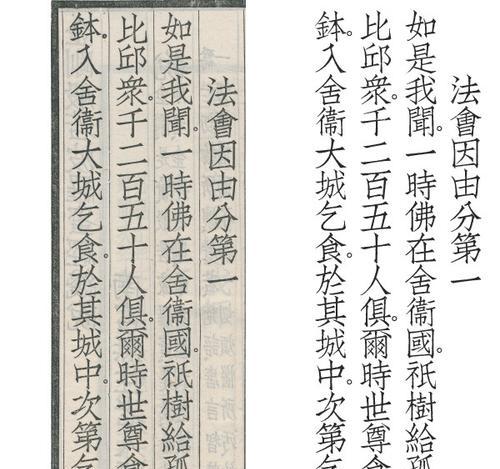 法會因由分第一
如是我聞。一時佛在舍衞國。祇樹給孤
比邱衆。千二百五十人俱。爾時世尊食
鉢。入舍衞大城乞食。於其城中。次第乞
法會因由分第一
如是我聞。一時佛在舍衞國。祇樹給孤
比邱衆。千二百五十人俱。爾時世尊食
鉢。入舍衞大城乞食。於其城中。次第乞